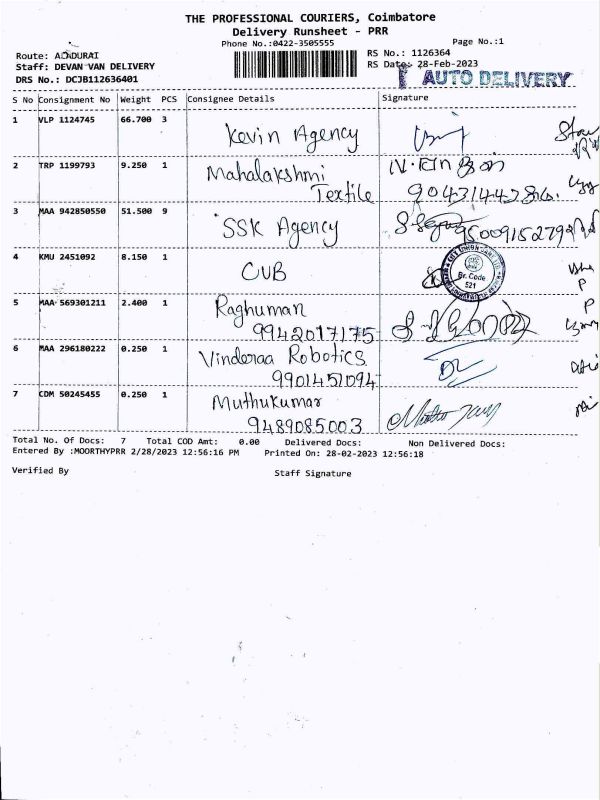 THE PROFESSIONAL COURIERS, Coimbatore
Delivery Runsheet - PRR
Phone No.:0422-3505555 Page No.:1
Route: AZADURAI RS No.: 1126364
Staff: DEVAN VAN DELIVERY RS Date: 28-Feb-2023
DRS No.: DCJB112636401 AUTO DELIVERY
S No Consignment No Weight PCS Consignee Details Signature
1 VLP 1124745 66.700 3 Kevin Agency
2 TRP 1199793 9.250 1 Mahalakshmi
Textile
3 MAA 942850550 51.500 9 SSK Agency 9500915279
4 KMU 2451092 8.150 1 CUB
CITY UNION BANK LTD
Br. Code
521
5 MAA 569301211 2.400 1 Raghuman
9942017175
6 MAA 296180222 0.250 1 Vinderaa Robotics
9901451094
7 CDM 50245455 0.250 1 Muthukumar
9489085003
Total No. Of Docs: 7 Total COD Amt: 0.00 Delivered Docs: Non Delivered Docs:
Entered By :MOORTHYPRR 2/28/2023 12:56:16 PM Printed On: 28-02-2023 12:56:18
Verified By Staff Signature